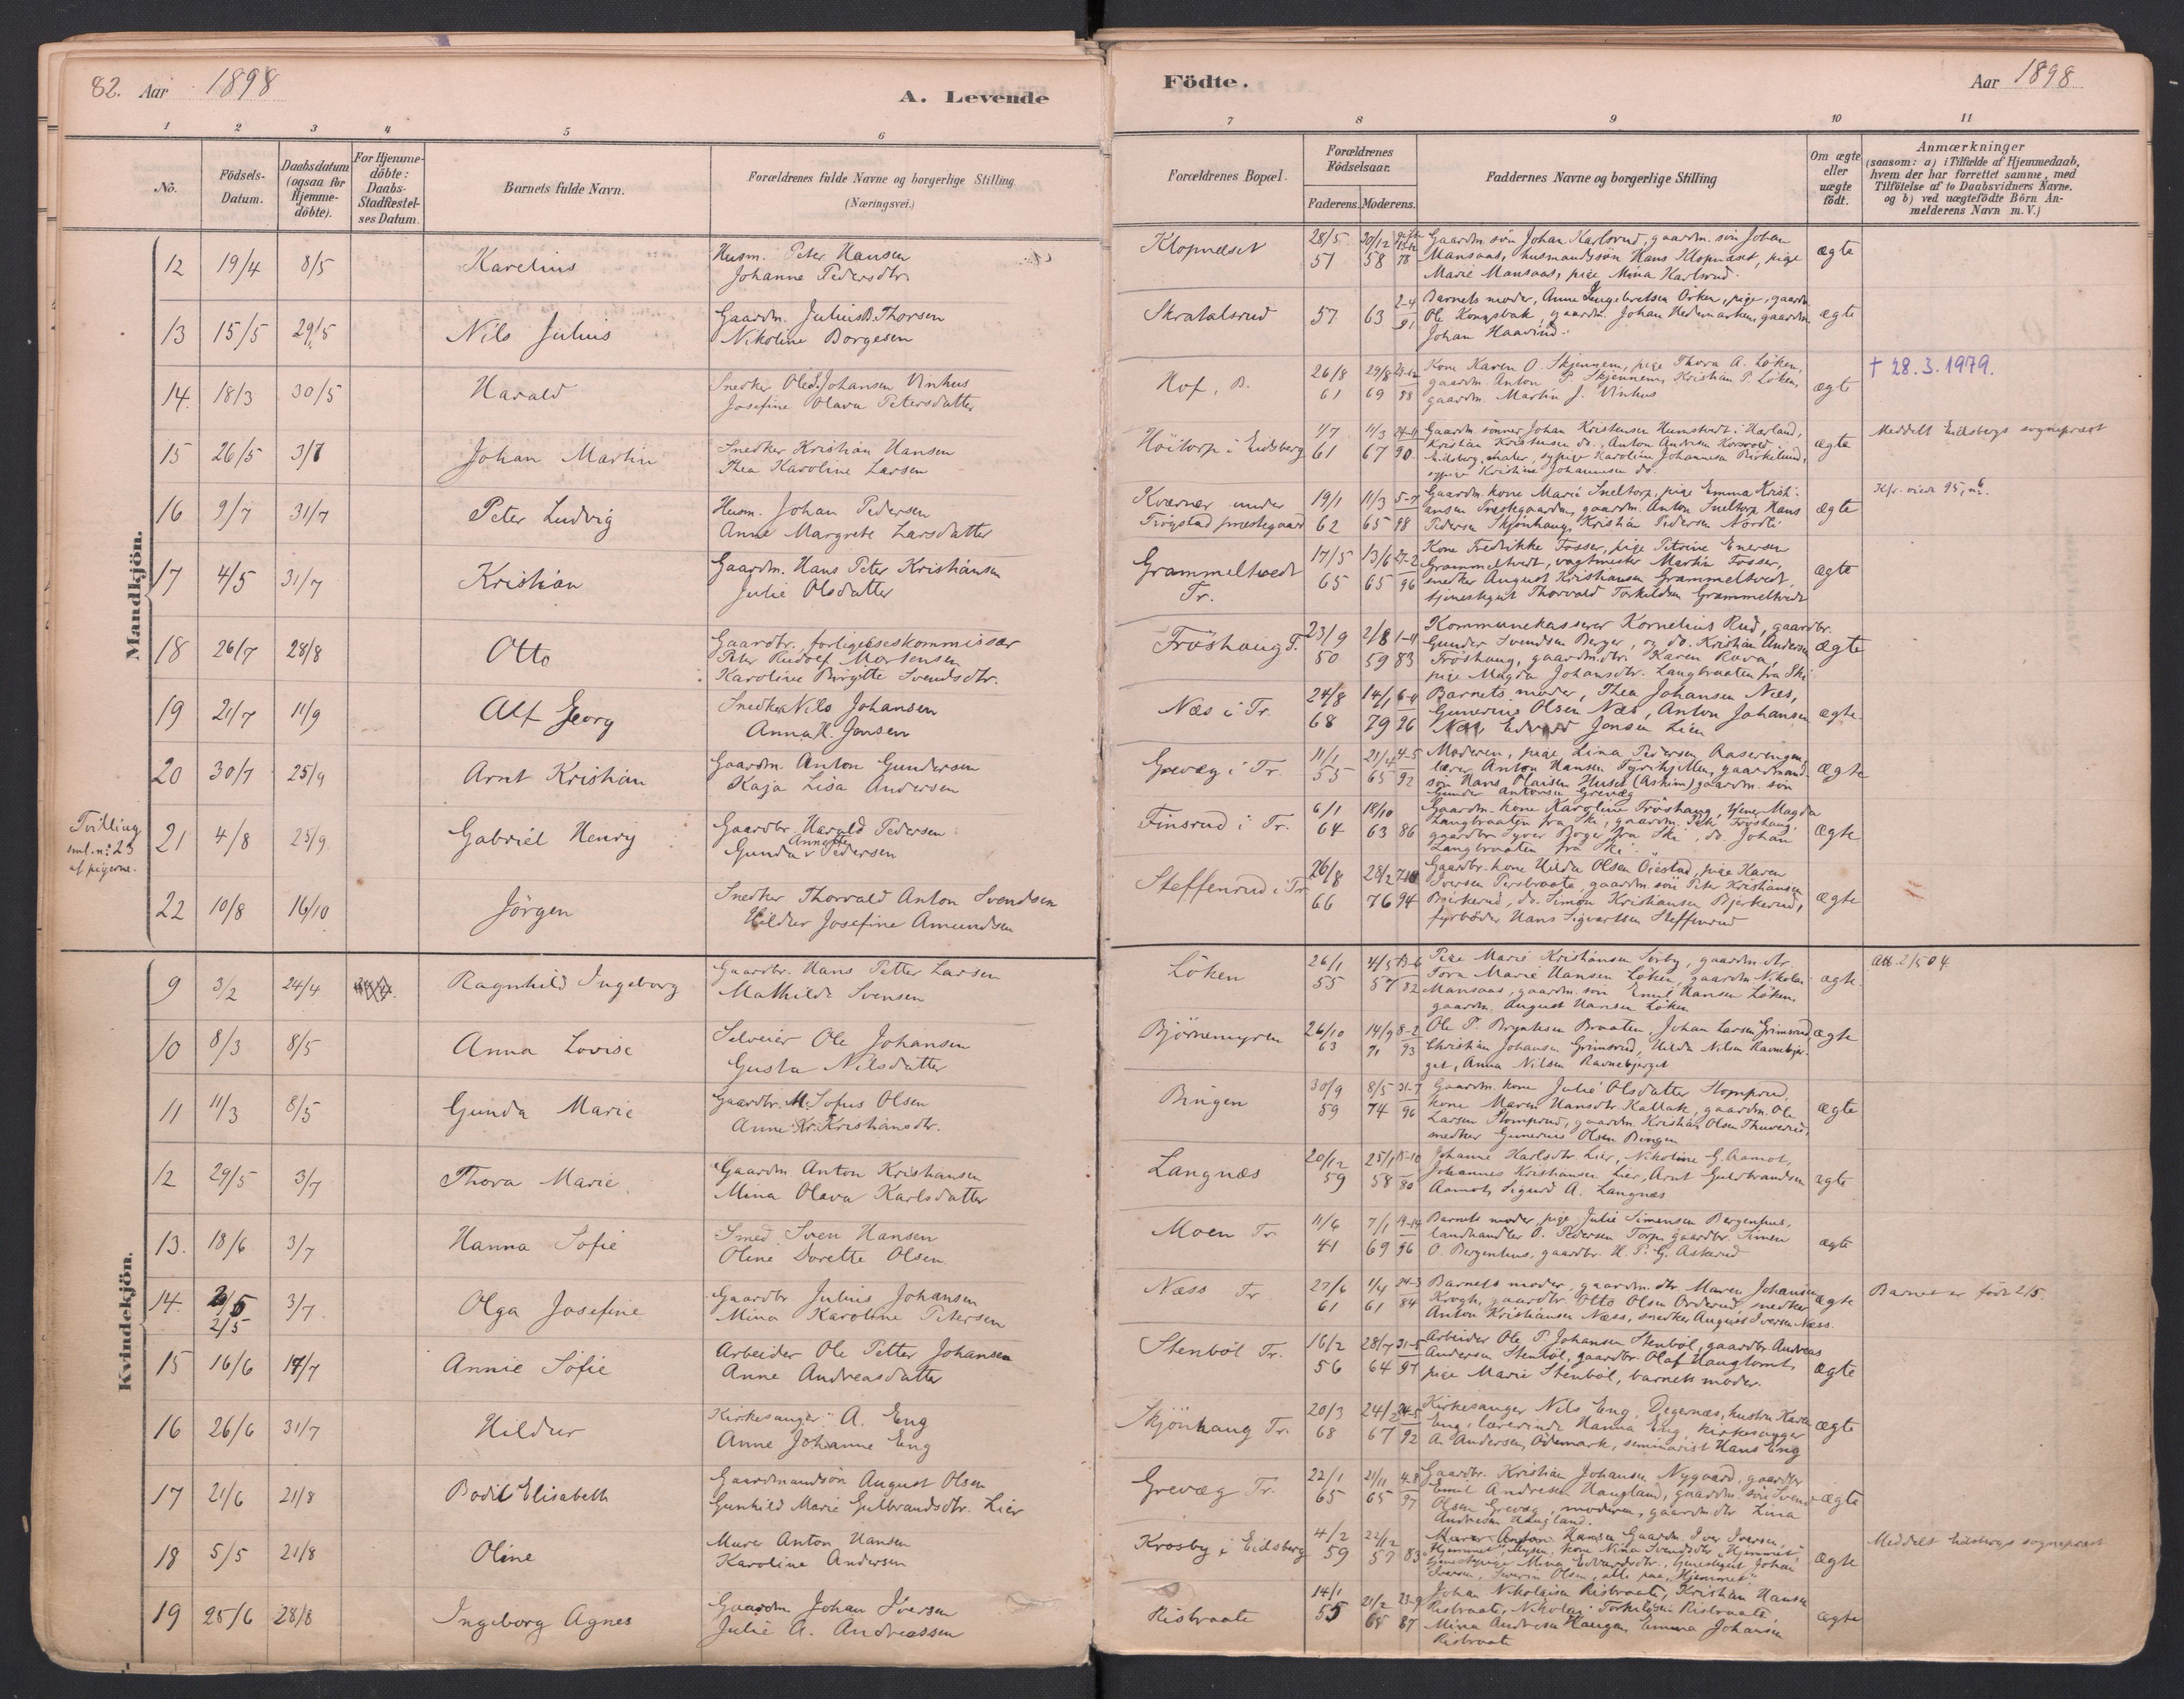 82. Aar 1898
A. Levende
Födte.
Aar 1898
1 2 3 4 5 6 7 8 9 10 11
No.
Födsels-
Datum.
Daabsdatum
(ogsaa for
Hjemme-
döbte).
For Hjemme-
döbte:
Daabs-
Stadfæstel-
ses Datum.
Barnets fulde Navn.
Forældrenes fulde Navne og borgerlige Stilling
(Næringsvei.)
Forældrenes Bopæl.
Forældrenes
Födselsaar.
Faderens. Moderens.
Faddernes Navne og borgerlige Stilling
Om ægte
eller
uægte
födt.
Anmærkninger
(saasom: a) i Tilfælde af Hjemmedaab,
hvem der har forrettet samme, med
Tilföielse af to Daabsvidners Navne,
og b) ved uægtefödte Börn An-
melderens Navn m. V.)
Mandkjön.
12 19/4 8/5 Karelius
Husm. Peter Hansen
Johanne Pedersdtr.
Klopnæset 28/5 57 20/12 58 78
Gaardm. sön Johan Karlsrud, gaardm. sön Johan
Mansaas, husmandssön Hans Klopnæset, pige
Marie Mansaas, pige Mina Karlsrud.
ægte
13 15/5 29/5 Nils Julius
Gaardm. Julius B. Thorsen
Nikoline Borgesen
Skratalsrud 57 63 2-4 91
Barnets moder, Anne Engebretsen Orken, pige, gaardm.
Ole Kongsbak, gaardm. Johan Hedemarken, gaardm.
Johan Haarud.
ægte
14. 18/3 30/5 Harald
Snedker Ole E. Johansen Vinhus
Josefine Olava Petersdatter
Hof, B. 26/8 61 29/8 69 88
Kone Karen O. Skjennem, pige Thora A. Löken,
gaardm. Anton P. Skjennem, Kristian P. Löken,
gaardm. Martin J. Vinhus
ægte
† 28.3.1979.
15 26/5 3/7 Johan Martin
Snedker Kristian Hansen
Thea Karoline Larsen
Höitorp i Eidsberg 1/7 61 11/3 67 24-11 90
Gaardm. sönner Johan Kristensen Humstvedt i Hærland,
Kristian Kristensen do., Anton Andersen
Eidsberg, maler, sypige Karoline Johannesen Birkelund,
sypige Kristine Johannesen do.
ægte
Meddelt Eidsbergs sogneprest
16 9/7 31/7 Peter Ludvig
Husm. Johan Pedersen
Anne Margrete Larsdatter
Kværner under
Trögstad prestegaard 19/1 62 11/3 65 5-7 98
Gaardm. kone Marie Sneltorp, pige Emma Kristi-
ansen Prestegaarden, gaardm. Anton Sneltorp, Hans
Pedersen Skjönhaug, Kristian Pedersen Nordli
ægte
17 4/5 31/7 Kristian
Gaardm. Hans Peter Kristiansen
Julie Olsdatter
Grammeltvedt
Tr. 17/5 65 13/6 65 27-2 96
Kone Fredrikke Fosser, pige Petrine Enersen
Grammeltvedt, vagtmester Martin Fosser,
snedker August Kristiansen Grammeltvedt,
tjenestegut Thorvald Torkildsen Grammeltvedt
ægte
18 26/7 28/8 Otto
Gaardbr. forligelseskommissær
Peter Rudolf Mortensen
Karoline Birgitte Svendsdtr.
Fröshaug T. 23/9 50 2/8 59 1-11 83
Kommunekasserer Kornelius Rud, gaardbr.
Gunder Svendsen Berger, og do. Kristian Andersen
Fröshaug, gaardm.dtr. Karen Rava,
pige Magda Johansdtr. Langbraaten fra Ski
ægte
19 21/7 11/9 Alf Georg
Snedker Nils Johansen
Anna H. Jansen
Næs i Tr. 24/8 68 14/1 79 96
Barnets moder, Thea Johansen Næs,
Gunerius Olsen Næs, Anton Johansen
Næs, Edvard Jonsen Lien
ægte.
20 30/7 25/9 Arnt Kristian
Gaardm. Anton Gundersen
Kaja Lisa Andersen
Grevæg i Tr. 11/1 55 21/4 65 4-5 92
Moderen, pige Lina Pedersen
lærer Anton Hansen Fyrihjellen, gaardmand-
sön Hans Huseb (Askim) gaardm. sön
Gunder Antonsen Grevæg
ægte
Tvilling
sml. no. 23
af pigerne.
21 4/8 25/9 Gabriel Henry
Gaardbr. Harald Pedersen
Gunda Annette Pedersen
Finsrud i Tr. 6/1 64 18/10 63 86
Gaardm. kone Karoline Fröshaug, Magda
Langbraaten fra Ski, gaardm. Pet. Fröshaug,
gaardbr. Syver Borger fra Ski, do. Johan
Langbraaten fra Ski.
ægte
22 10/8 16/10 Jörgen
Snedker Thorvald Anton Svendsen
Hildur Josefine Amundsen
Steffensrud i Tr. 26/8 66 28/2 76 94
Gaardbr. kone Hilda Olsen Öiestad, pige Karen
Iversen Persbraate, gaardm. sön Peter Kristiansen
Bjerkerud, do. Simon Kristiansen Bjerkerud,
fyrböder Hans Sigvartsen Steffensrud
ægte
Kvindekjön.
9 3/2 24/4 Ragnhild Ingeborg
Gaardbr. Hans Petter Larsen
Mathilde Svensen
Löken 26/1 55 4/5 57 82
Pige Marie Kristiansen Sörby, gaardm. dtr.
Tora Marie Hansen Löken, gaardm. Nikolai
Mansaas, gaardm. sön Emil Hansen Löken,
gaardm. August Hansen Löken
ægte.
Att. 2/5 04
10 8/3 8/5 Anna Lovise
Selveier Ole Johansen
Gusta Nilsdatter
Björnemyren 26/10 63 14/9 71 8-2 93
Ole P. Bryntesen Braaten, Johan Larsen Grimsrud,
Christian Johansen Grimsrud, Hilda Nilsen Ravnebjer-
get, Anna Nilsen Ravnebjerget
ægte
11 11/3 8/5 Gunda Marie
Gaardbr. M. Sofus Olsen
Anne Kr. Kristiansdtr.
Bingen 30/9 59 8/5 74 31-7 96
Gaardm. kone Julie Olsdatter Stomprud,
kone Maren Hansdtr. Kallak, gaardm. Ole
Larsen Stomprud, gaardm. Kristian Olsen Thuverud,
snedker Gunerius Olsen Bingen
ægte
12 29/5 3/7 Thora Marie
Gaardm. Anton Kristiansen
Mina Olava Karlsdatter
Langnæs 20/12 59 25/1 58 80
Johanne Karlsdtr. Lier, Nikoline G. Aamot,
Johannes Kristiansen Lier, Arnt Guldbrandsen
Aamot, Sigurd A. Langnæs
ægte
13. 18/6 3/7 Hanna Sofie
Smed Sven Hansen
Oline Dorette Olsen.
Moen Tr 11/6 41 7/1 69 96
Barnets moder, pige Julie Simensen Bergenhus,
landhandler O. Pedersen Torp, gaardbr. Simen
O. Bergenhus, gaardbr. H. P. G. Askerud
ægte
14. 2/5 3/7 Olga Josefine
2/5
Gaardbr Julius Johansen
Mina Karoline Petersen
Næss Tr 27/6 61 1/4 61 24-3 84
Barnets moder, gaardm. dtr. Maren Johansen
Krogh, gaardbr. Otto Olsen Orderud, snedker
Anton Kristiansen Næss, snedker August Iversen Næss.
ægte
Barnet er född 2/5.
15 16/6 17/7 Annie Sofie
Arbeider Ole Petter Johansen
Anne Andreasdatter
Stenböl Tr. 16/2 56 28/7 64 31-5 97
Arbeider Ole P. Johansen Stenböl, gaardbr. Andreas
Andersen Stenböl, gaardbr. Olaf Haugtomt,
pige Marie Stenböl, barnets moder.
ægte
16 26/6 31/7 Hildur
Kirkesanger A. Eng
Anne Johanne Eng
Skjönhaug Tr. 20/3 68 24/2 67 24-5 92
Kirkesanger Nils Eng, Degernæs, hustru Karen
Eng, lærerinde Hanna Eng, kirkesanger
A. Andersen, Ödemark, seminarist Hans Eng
ægte
17 21/6 21/8 Bodil Elisabeth
Gaardmandsön August Olsen
Gunhild Marie Gulbrandsdtr. Lier
Grevæg Tr. 22/1 65 21/11 65 4-8 97
Gaardbr. Kristian Johansen Nygaard, gaardbr
Emil Andresen Haugland, gaardm. sön Svend
Olsen Grevæg, moderen, gaardm. dtr. Lina
Andresen Haugland.
ægte
18 5/5 21/8 Oline
Murer Anton Hansen
Karoline Andersen
Krosby i Eidsberg 4/2 59 22/12 57 83
Murer Anton Hansen, Gaardm. Iver Iversen,
"Hjemmet", Mysen, kone Nina Svendsdtr. "Hjemmet",
tjenestepige Mina Edvardsdtr., tjenestegut Johan
Iversen, Severin Olsen, alle paa "Hjemmet".
ægte
Meddelt Eidsbergs sogneprest
19 25/6 28/8 Ingeborg Agnes
Gaardm. Johan Iversen
Julie A. Andreassen
Risbraate 14/1 55 21/2 65 23-9 87
Johan Nikolaisen Risbraate, Kristian Hansen
Risbraate, Nikolai Torkildsen Risbraate,
Mina Andresen Haugan, Emma Johansen
Risbraate
ægte